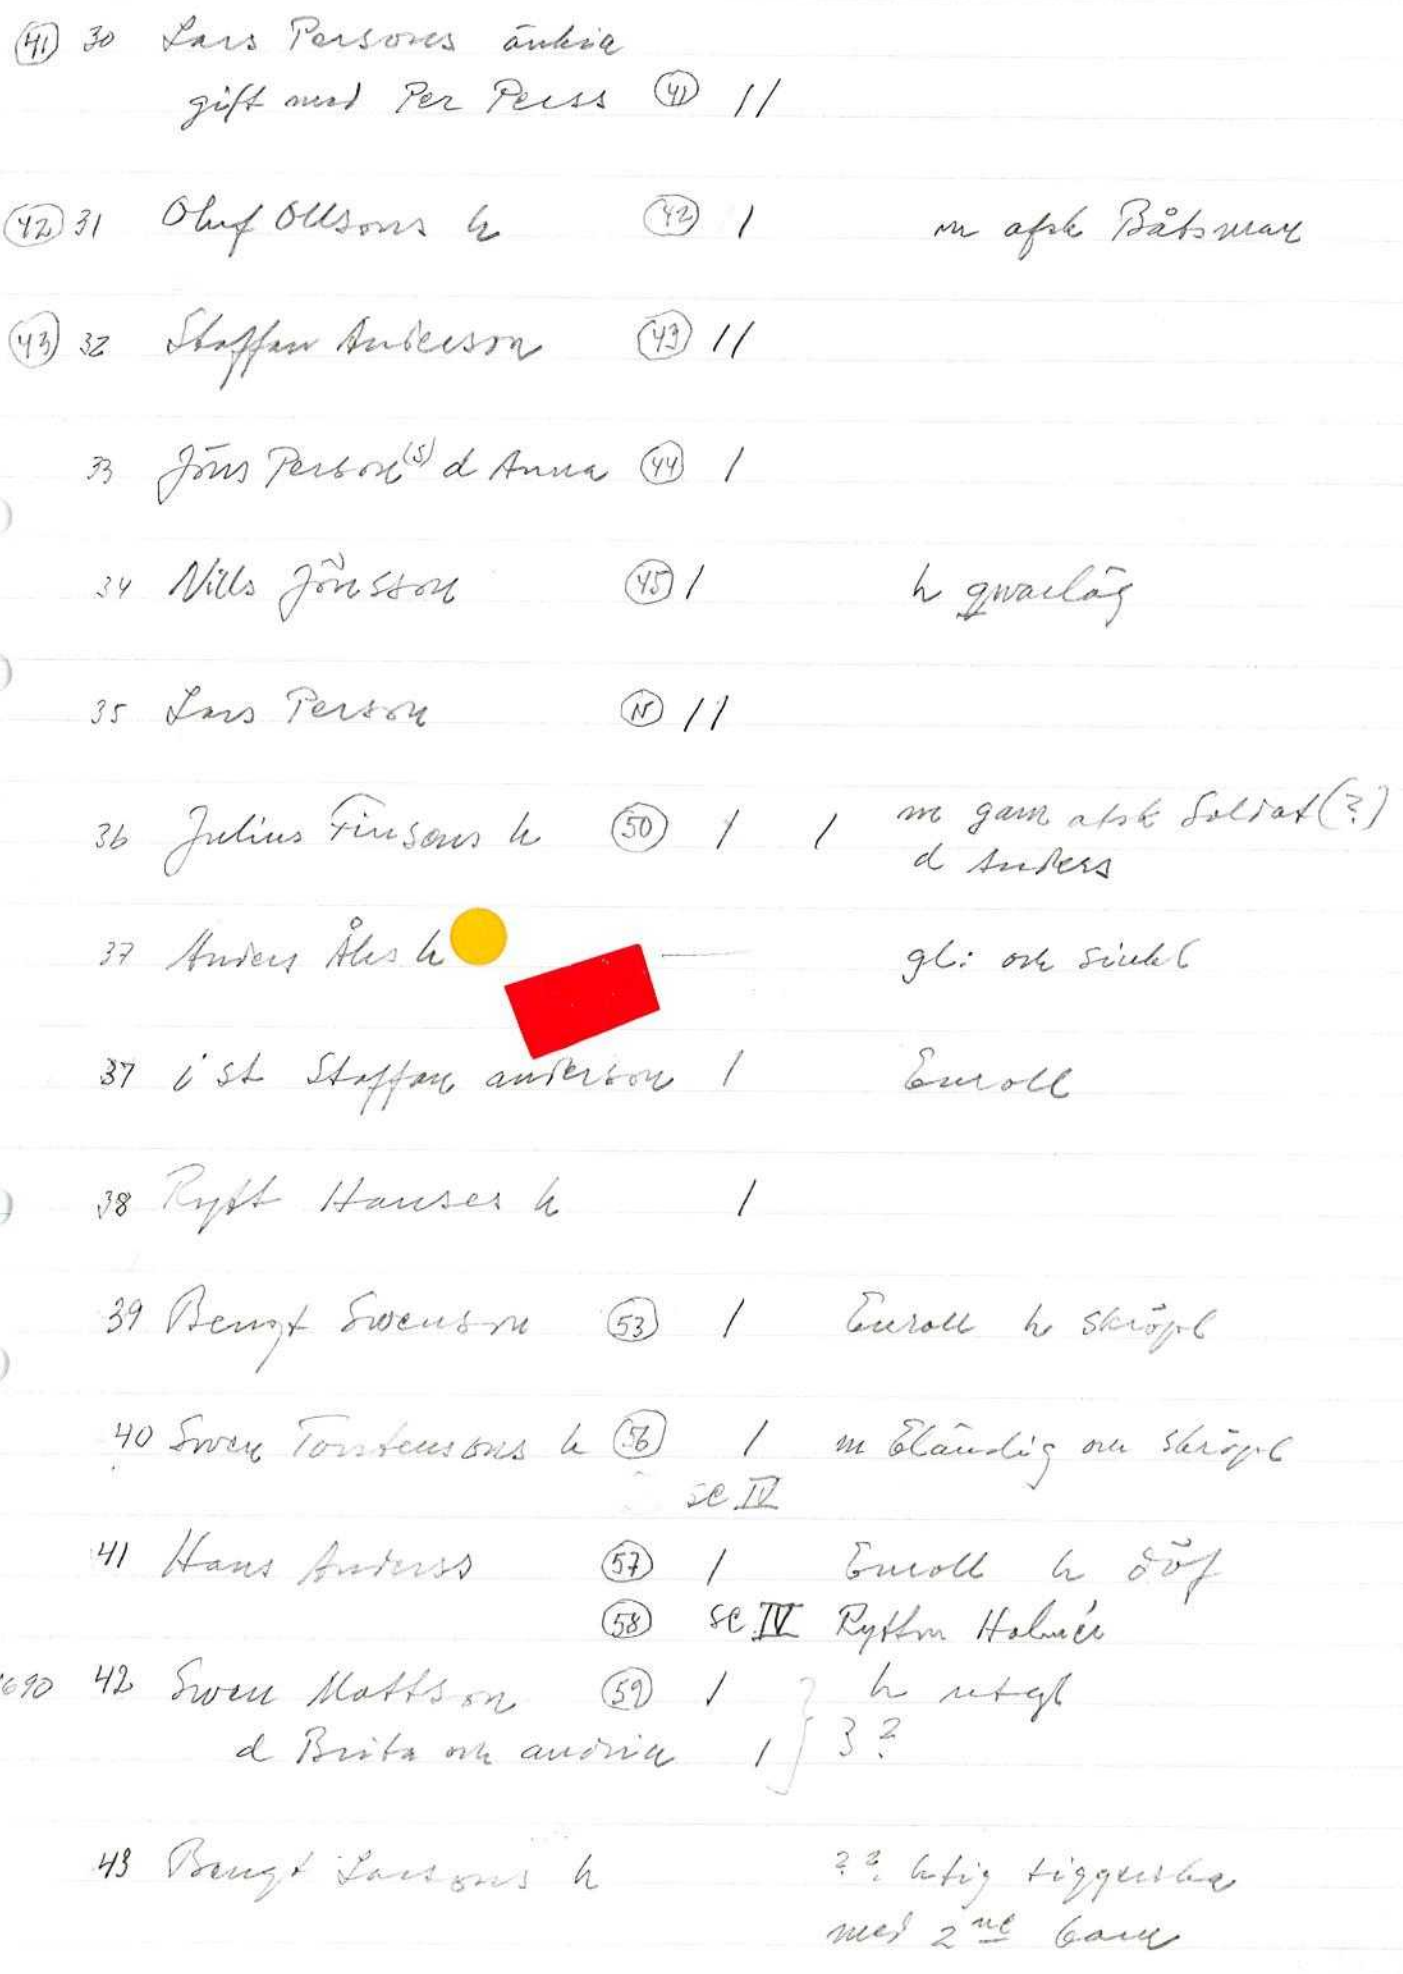 (41) 30 Lars Persons änkia
gift med Per Perss (41) //
(42) 31 Oluf Ollsons h (42) / m afsk Båtsman
(43) 32 Staffan Anderson (43) //
33 Jöns Person(s) d Anna (44) /
34 Nills Jönsson (45) / h qwarlåg
35 Lars Person (N) //
36 Julius Finsons h (50) / / m gam afsk Soldat (?)
d Anders
37 Anders Åkes h — gl: och siukl
37 i st Staffan anderson / Enroll
38 Rytt Hanses h /
39 Bengt Swenson (53) / Enroll h skröpl
40 Swen Torstensons h (56) / m Eländig och skröpl
se IV
41 Hans Anderss (57) / Enroll h döf
(58) se IV Ryttm Holmér
1690 42 Swen Mattson (59) / h utgl
d Brita och andra / } 3 ?
43 Bengt Larsons h ?? tiggerska
med 2 ne barn